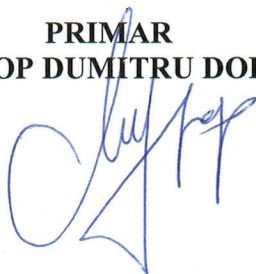 PRIMAR
OP DUMITRU DO